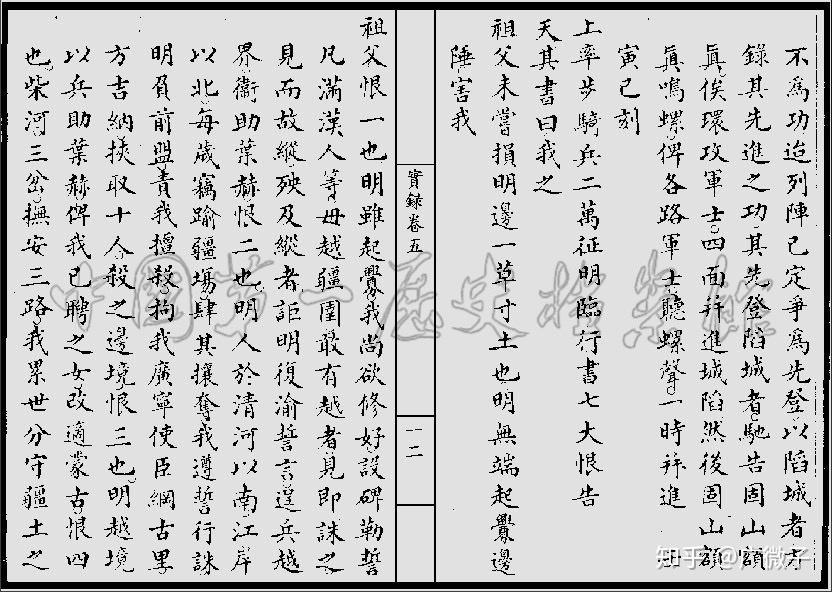 不爲功迨列陣已定爭爲先登以陷城者方
錄其先進之功其先登陷城者馳告固山額
眞俟環攻軍士四面并進城陷然後固山額
眞鳴螺俾各路軍士聽螺聲一時并進 壬
寅巳刻
上率步騎兵二萬征明臨行書七大恨告
天其書曰我之
祖父未嘗損明邊一草寸土也明無端起釁邊
陲害我
實錄卷五
一二
祖父恨一也明雖起釁我尚欲修好設碑勒誓
凡滿漢人等毋越疆圉敢有越者見即誅之
見而故縱殃及縱者詎明復渝誓言逞兵越
界衞助葉赫恨二也明人於清河以南江岸
以北每歲竊踰疆場肆其攘奪我遵誓行誅
明負前盟責我擅殺拘我廣寧使臣綱古里
方吉納挾取十人殺之邊境恨三也明越境
以兵助葉赫俾我已聘之女改適蒙古恨四
也柴河三岔撫安三路我累世分守疆土之
中國第一歷史檔案館
知乎 @微子